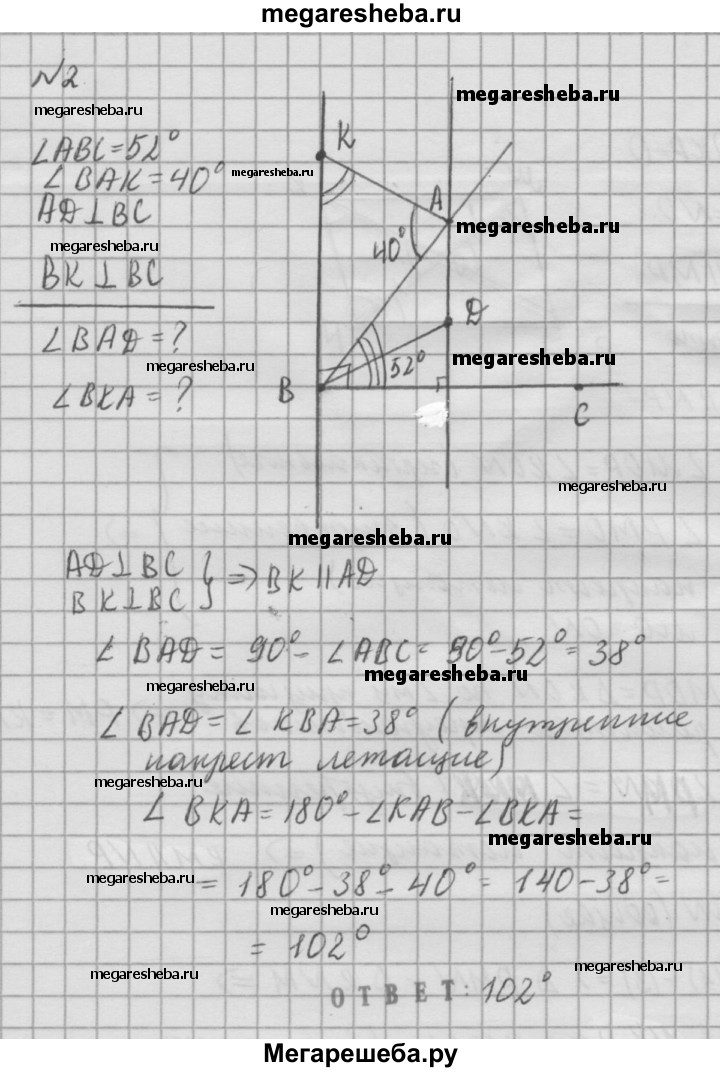 megaresheba.ru
№2
megaresheba.ru
∠ABC=52°
∠BAK=40° megaresheba.ru
AD⊥BC
megaresheba.ru
BK⊥BC
∠BAD=?
megaresheba.ru
∠BKA=?
K
megaresheba.ru
A
megaresheba.ru
40°
D
megaresheba.ru
52°
B
C
megaresheba.ru
megaresheba.ru
AD⊥BC
BK⊥BC } ⇒ BK||AD
∠BAD = 90° - ∠ABC = 90° - 52° = 38°
megaresheba.ru megaresheba.ru
∠BAD = ∠KBA = 38° (внутренние
накрест лежащие)
megaresheba.ru
∠BKA = 180° - ∠KAB - ∠BKA =
megaresheba.ru
megaresheba.ru = 180° - 38° - 40° = 140 - 38° =
megaresheba.ru
= 102°
megaresheba.ru megaresheba.ru
ОТВЕТ: 102°
Мегарешеба.ру